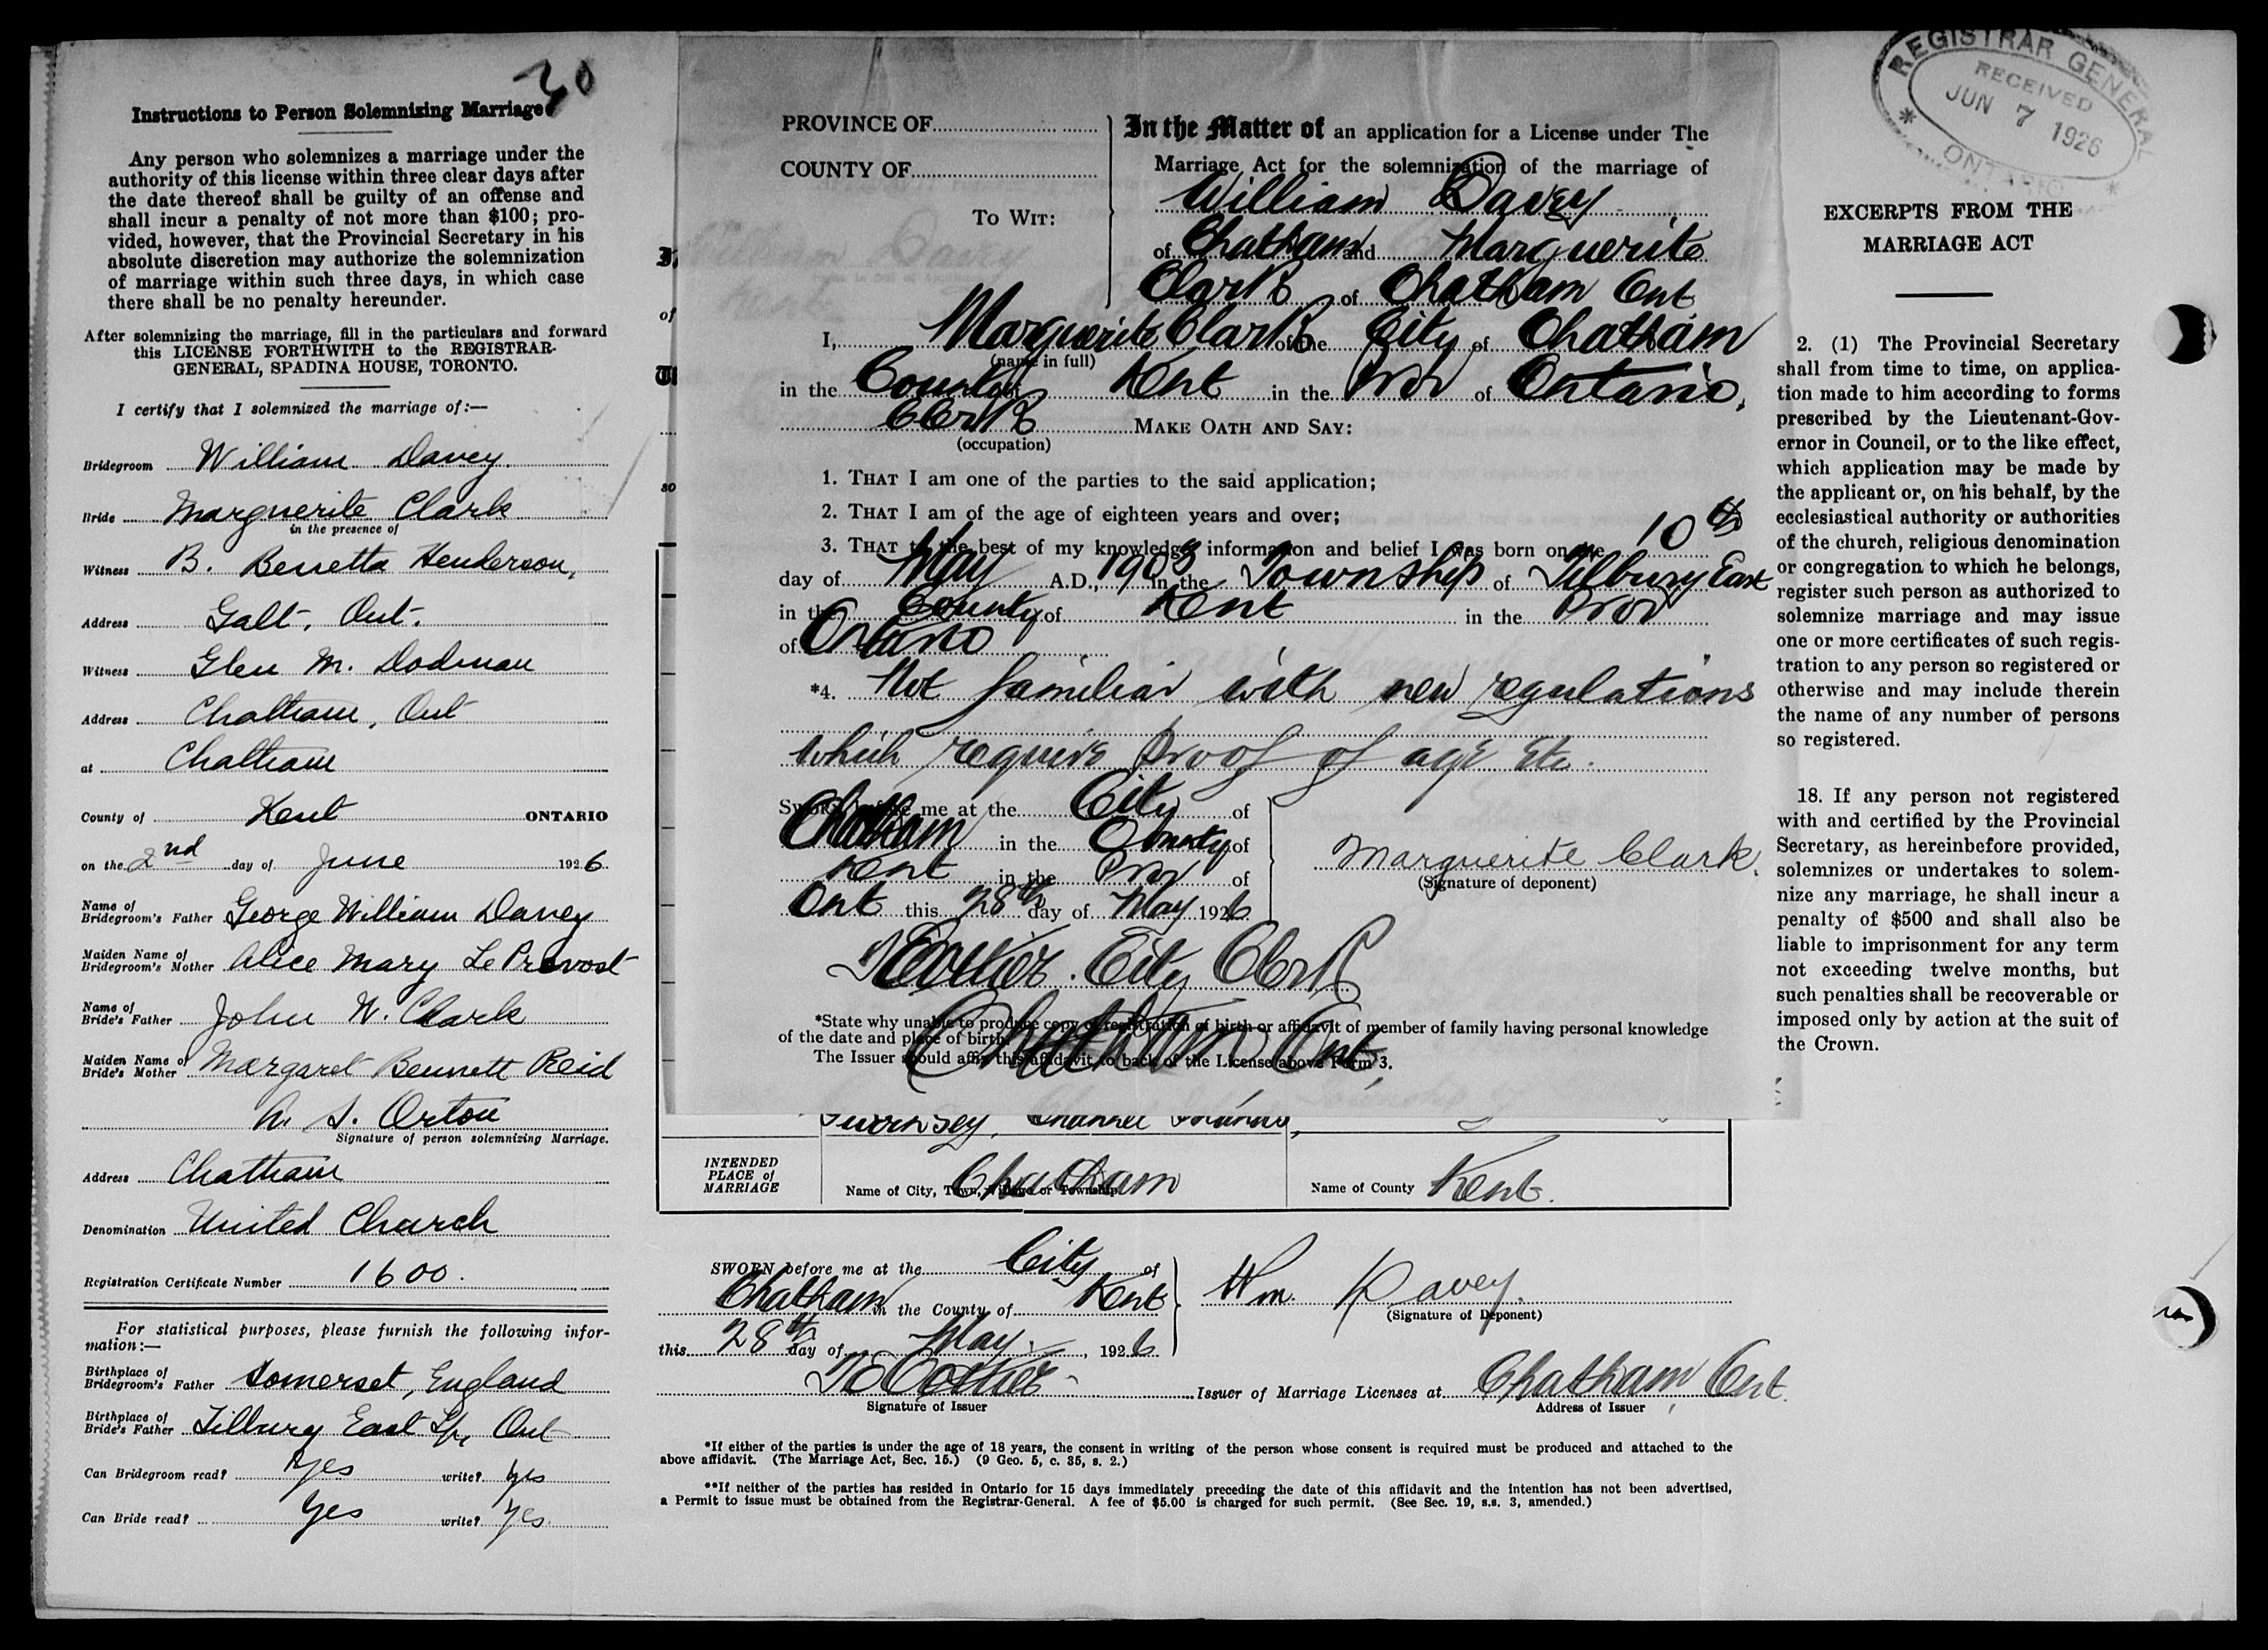 30
Instructions to Person Solemnizing Marriage
Any person who solemnizes a marriage under the
authority of this license within three clear days after
the date thereof shall be guilty of an offense and
shall incur a penalty of not more than $100; pro-
vided, however, that the Provincial Secretary in his
absolute discretion may authorize the solemnization
of marriage within such three days, in which case
there shall be no penalty hereunder.
After solemnizing the marriage, fill in the particulars and forward
this LICENSE FORTHWITH to the REGISTRAR-
GENERAL, SPADINA HOUSE, TORONTO.
I certify that I solemnized the marriage of:—
Bridegroom William Davey
Bride Marguerite Clark
in the presence of
Witness B. Benetta Henderson,
Address Galt, Ont.
Witness Glen M. Dodman
Address Chatham, Ont
at Chatham
County of Kent ONTARIO
on the 2nd day of June 1926
Name of
Bridegroom's Father George William Davey
Maiden Name of
Bridegroom's Mother Alice Mary Le Provost
Name of
Bride's Father John W. Clark
Maiden Name of
Bride's Mother Margaret Bennett Reid
S. Orton
Signature of person solemnizing Marriage.
Address Chatham
Denomination United Church
Registration Certificate Number 1600.
For statistical purposes, please furnish the following infor-
mation:—
Birthplace of
Bridegroom's Father Somerset, England
Birthplace of
Bride's Father Tilbury East Tp, Ont
Can Bridegroom read? Yes write? yes
Can Bride read? Yes write? yes
PROVINCE OF
COUNTY OF
TO WIT:
In the Matter of an application for a License under The
Marriage Act for the solemnization of the marriage of
William Davey
of Chatham and Marguerite
Clark of Chatham Ont
I, Marguerite Clark of the City of Chatham
(name in full)
in the County of Kent in the Prov of Ontario,
Clerk MAKE OATH AND SAY:
(occupation)
1. THAT I am one of the parties to the said application;
2. THAT I am of the age of eighteen years and over;
3. THAT to the best of my knowledge information and belief I was born on the 10th
day of May A.D., 1903 in the Township of Tilbury East
in the County of Kent in the Prov
of Ontario
*4. Not familiar with new regulations
which require Proof of age Etc.
SWORN before me at the City of
Chatham in the County of
Kent in the Prov of
Ont this 28th day of May 1926
Marguerite Clark.
(Signature of deponent)
City Clerk
Chatham Ont.
*State why unable to produce copy of registration of birth or affidavit of member of family having personal knowledge
of the date and place of birth.
The Issuer should affix this affidavit to back of the License above Form 3.
Guernsey, Channel Islands,
INTENDED
PLACE of
MARRIAGE
Chatham
Name of City, Town, Village or Township
Name of County Kent.
SWORN before me at the City of
Chatham in the County of Kent
this 28th day of May, 1926
Wm. Davey.
(Signature of Deponent)
Signature of Issuer
Issuer of Marriage Licenses at Chatham, Ont.
Address of Issuer
*If either of the parties is under the age of 18 years, the consent in writing of the person whose consent is required must be produced and attached to the
above affidavit. (The Marriage Act, Sec. 15.) (9 Geo. 5, c. 35, s. 2.)
**If neither of the parties has resided in Ontario for 15 days immediately preceding the date of this affidavit and the intention has not been advertised,
a Permit to issue must be obtained from the Registrar-General. A fee of $5.00 is charged for such permit. (See Sec. 19, s.s. 3, amended.)
REGISTRAR GENERAL
RECEIVED
JUN 7 1926
ONTARIO
EXCERPTS FROM THE
MARRIAGE ACT
2. (1) The Provincial Secretary
shall from time to time, on applica-
tion made to him according to forms
prescribed by the Lieutenant-Gov-
ernor in Council, or to the like effect,
which application may be made by
the applicant or, on his behalf, by the
ecclesiastical authority or authorities
of the church, religious denomination
or congregation to which he belongs,
register such person as authorized to
solemnize marriage and may issue
one or more certificates of such regis-
tration to any person so registered or
otherwise and may include therein
the name of any number of persons
so registered.
18. If any person not registered
with and certified by the Provincial
Secretary, as hereinbefore provided,
solemnizes or undertakes to solem-
nize any marriage, he shall incur a
penalty of $500 and shall also be
liable to imprisonment for any term
not exceeding twelve months, but
such penalties shall be recoverable or
imposed only by action at the suit of
the Crown.